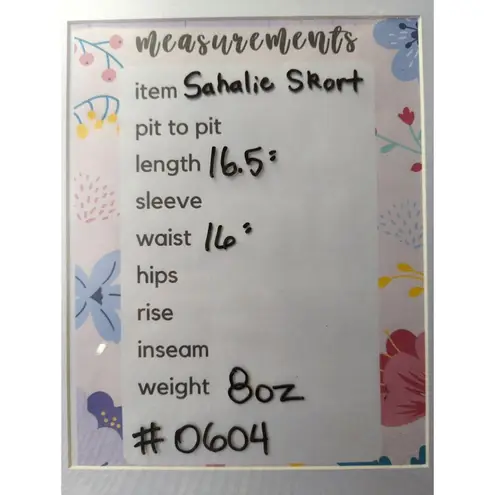 measurements
item Sahalie Skort
pit to pit
length 16.5"
sleeve
waist 16"
hips
rise
inseam
weight 8oz
#0604